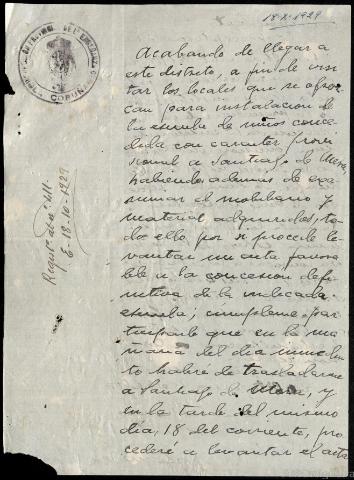 18-X-1929
CORUÑA
Acabando de llegar a
este distrito, a fin de visi-
tar los locales que se ofrez-
can para instalación de
la escuela de niños conce-
dida con caracter provi-
sional a Santiago de Mens,
habiendo, ademas, de exa-
minar el mobiliario y
material adquiridos, to-
do ello por si procede le-
vantar un acta favora-
ble a la concesión defi-
nitiva de la indicada
escuela; cumpleme par-
ticiparle que en la ma-
ñana del dia
habre de trasladarme
a Santiago de Mens, y
en la tarde del mismo
dia, 18 del corriente, pro-
cederé a levantar el acta
E. 18-10-1929